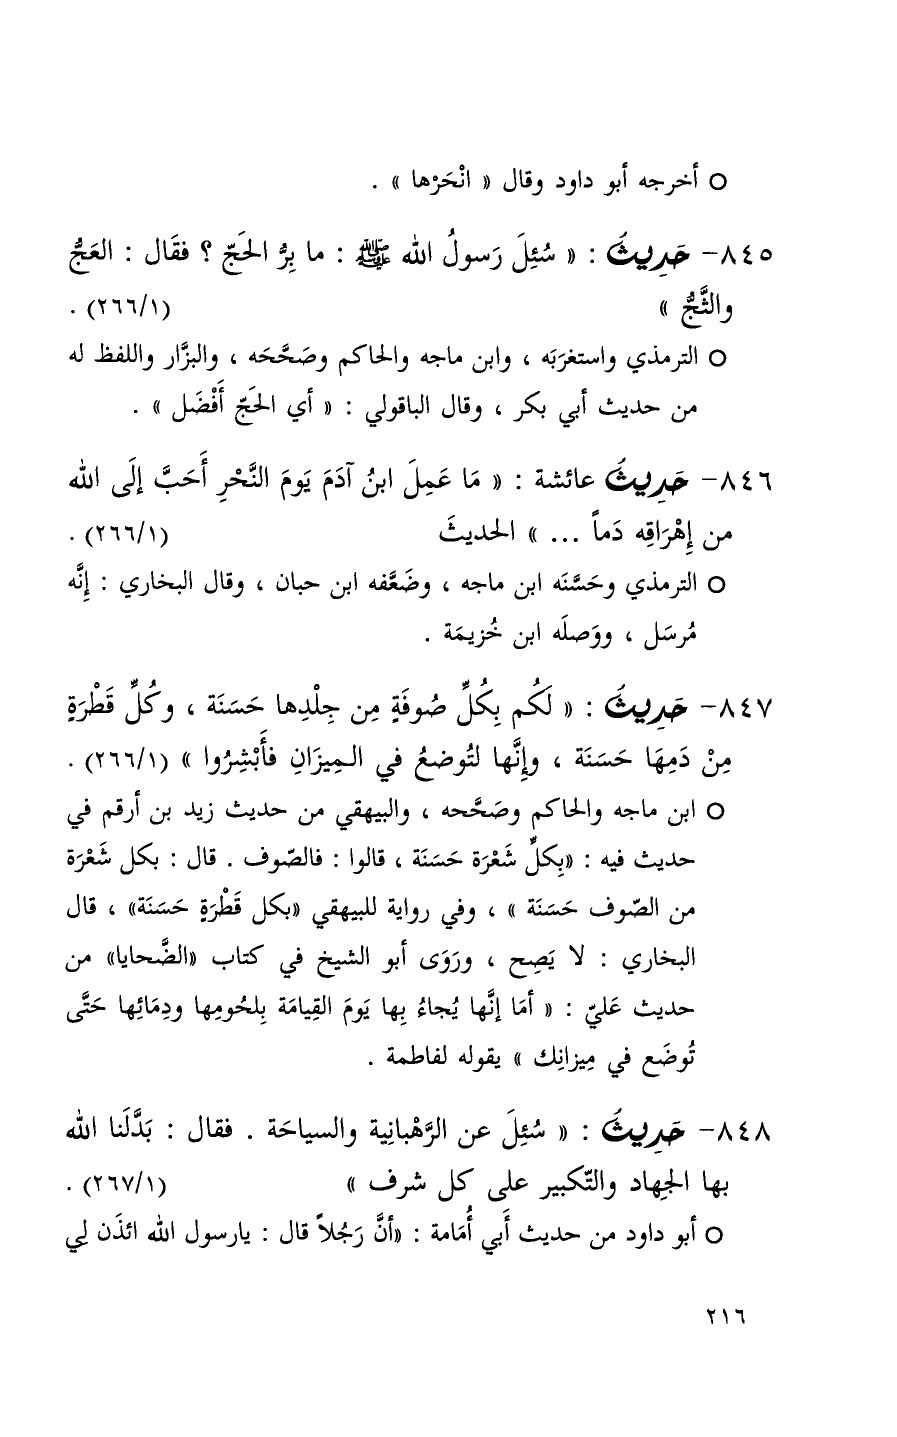 ○ أخرجه أبو داود وقال « انْحَرْها » .
٨٤٥- حَدِيثُ : « سُئِلَ رَسولُ الله ﷺ : ما بِرُّ الحَجّ ؟ فقَال : العَجُّ
والثَّجُّ » (٢٦٦/١) .
○ الترمذي واستغرَبَه ، وابن ماجه والحاكم وصَحَّحَه ، والبزَّار واللفظ له
من حديث أبي بكر ، وقال الباقولي : « أي الحَجّ أَفْضَل » .
٨٤٦- حَدِيثُ عائشة : « مَا عَمِلَ ابنُ آدَمَ يَومَ النَّحْرِ أَحَبَّ إلَى الله
من إِهْرَاقِه دَماً ... » الحديثَ (٢٦٦/١) .
○ الترمذي وحَسَّنَه ابن ماجه ، وضَعَّفه ابن حبان ، وقال البخاري : إِنَّه
مُرسَل ، ووَصلَه ابن خُزيمَة .
٨٤٧- حَدِيثُ : « لَكُم بِكُلِّ صُوفَةٍ مِن جِلْدِها حَسَنَة ، وكُلِّ قَطْرَةٍ
مِنْ دَمِهَا حَسَنَة ، وإِنَّها لتُوضعُ في المِيزَانِ فأَبْشِرُوا » (٢٦٦/١) .
○ ابن ماجه والحاكم وصَحَّحه ، والبيهقي من حديث زيد بن أرقم في
حديث فيه : «بِكلِّ شَعْرَة حَسَنَة ، قالوا : فالصّوف . قال : بكل شَعْرَة
من الصّوف حَسَنَة » ، وفي رواية للبيهقي «بكل قَطْرَةٍ حَسَنَة» ، قال
البخاري : لا يَصِح ، ورَوَى أبو الشيخ في كتاب «الضَّحايا» من
حديث عَليّ : « أمَا إنَّها يُجاءُ بِها يَومَ القِيامَة بِلحُومِها ودِمَائِها حَتَّى
تُوضَع في مِيزانِك » يقوله لفاطمة .
٨٤٨- حَدِيثُ : « سُئِلَ عن الرَّهْبانِية والسياحَة . فقال : بَدَّلَنا الله
بها الجِهاد والتّكبير على كل شرف » (٢٦٧/١) .
○ أبو داود من حديث أَبي أُمَامة : «أنَّ رَجُلاً قال : يارسول الله ائذَن لِي
٢١٦